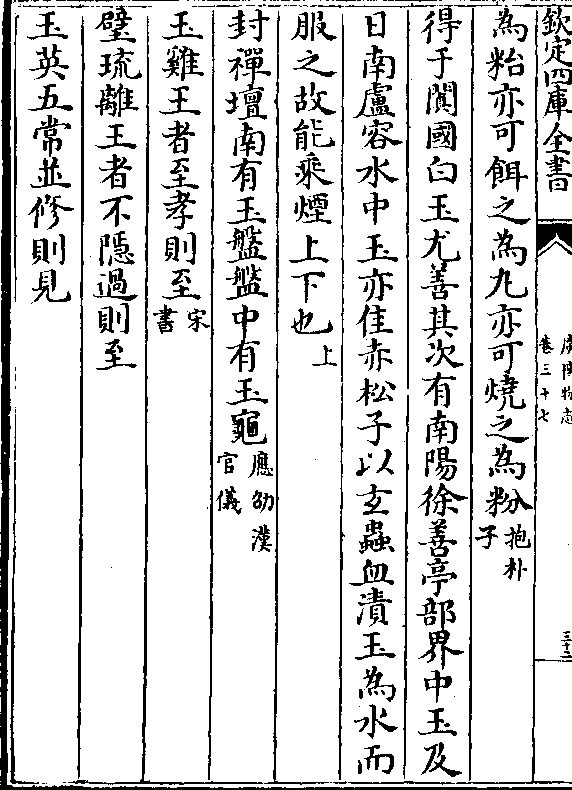 欽定四庫全書
廣博物志
卷三十七
三十二
為粭亦可餌之為丸亦可燒之為粉抱朴子
得于闐國白玉尤善其次有南陽徐善亭部界中玉及
日南盧容水中玉亦佳赤松子以玄蟲血漬玉為水而
服之故能乘煙上下也上
封禪壇南有玉盤盤中有玉龜應劭漢官儀
玉雞王者至孝則至宋書
璧琉離王者不隱過則至
玉英五常並修則見